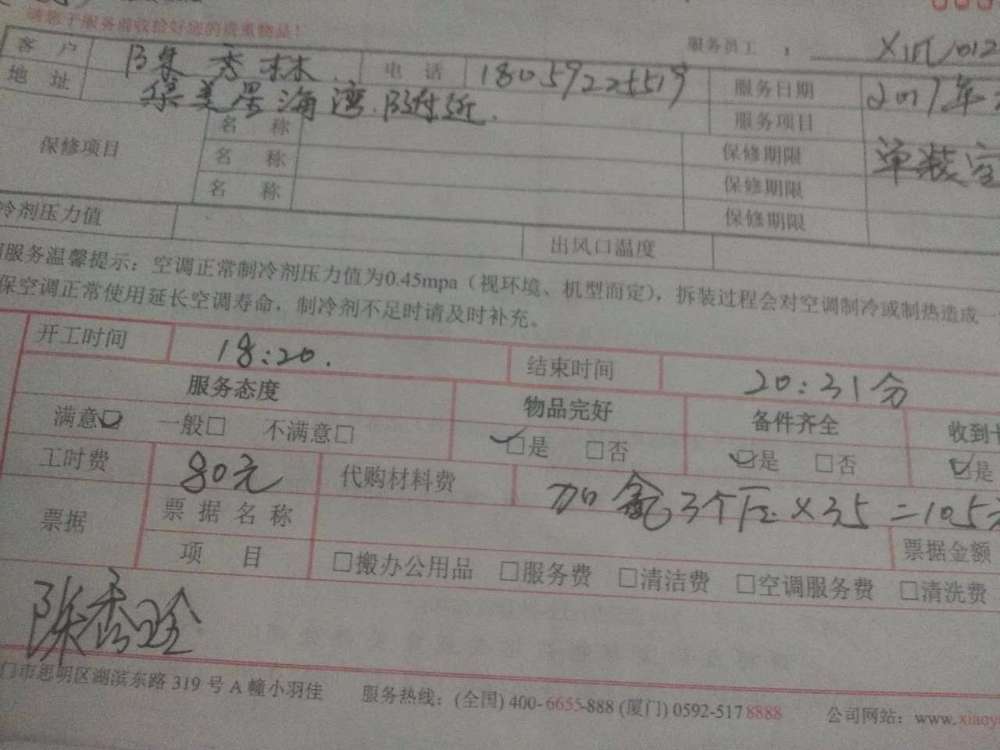 请您于服务前收检好您的贵重物品!
服务员工：
客户 陈秀林 电话 18059225519 服务日期 2017年
地址 集美墨海湾附近. 服务项目 单装空
保修项目 名称 保修期限
名称 保修期限
名称 保修期限
冷剂压力值 出风口温度
服务温馨提示：空调正常制冷剂压力值为0.45mpa（视环境、机型而定），拆装过程会对空调制冷或制热造成一
保空调正常使用延长空调寿命，制冷剂不足时请及时补充。
开工时间 18:20. 结束时间 20:31分
服务态度 物品完好 备件齐全 收到
满意☑ 一般□ 不满意□ ☑是 □否 ☑是 □否 ☑是
工时费 80元 代购材料费 加氟3个压×35=105元
票据 票据名称 票据金额
项目 □搬办公用品 □服务费 □清洁费 □空调服务费 □清洗费
陈秀玲
门市思明区湖滨东路 319 号 A 幢小羽佳 服务热线：(全国) 400-6655-888 (厦门) 0592-5178888 公司网站：www.xiaoy